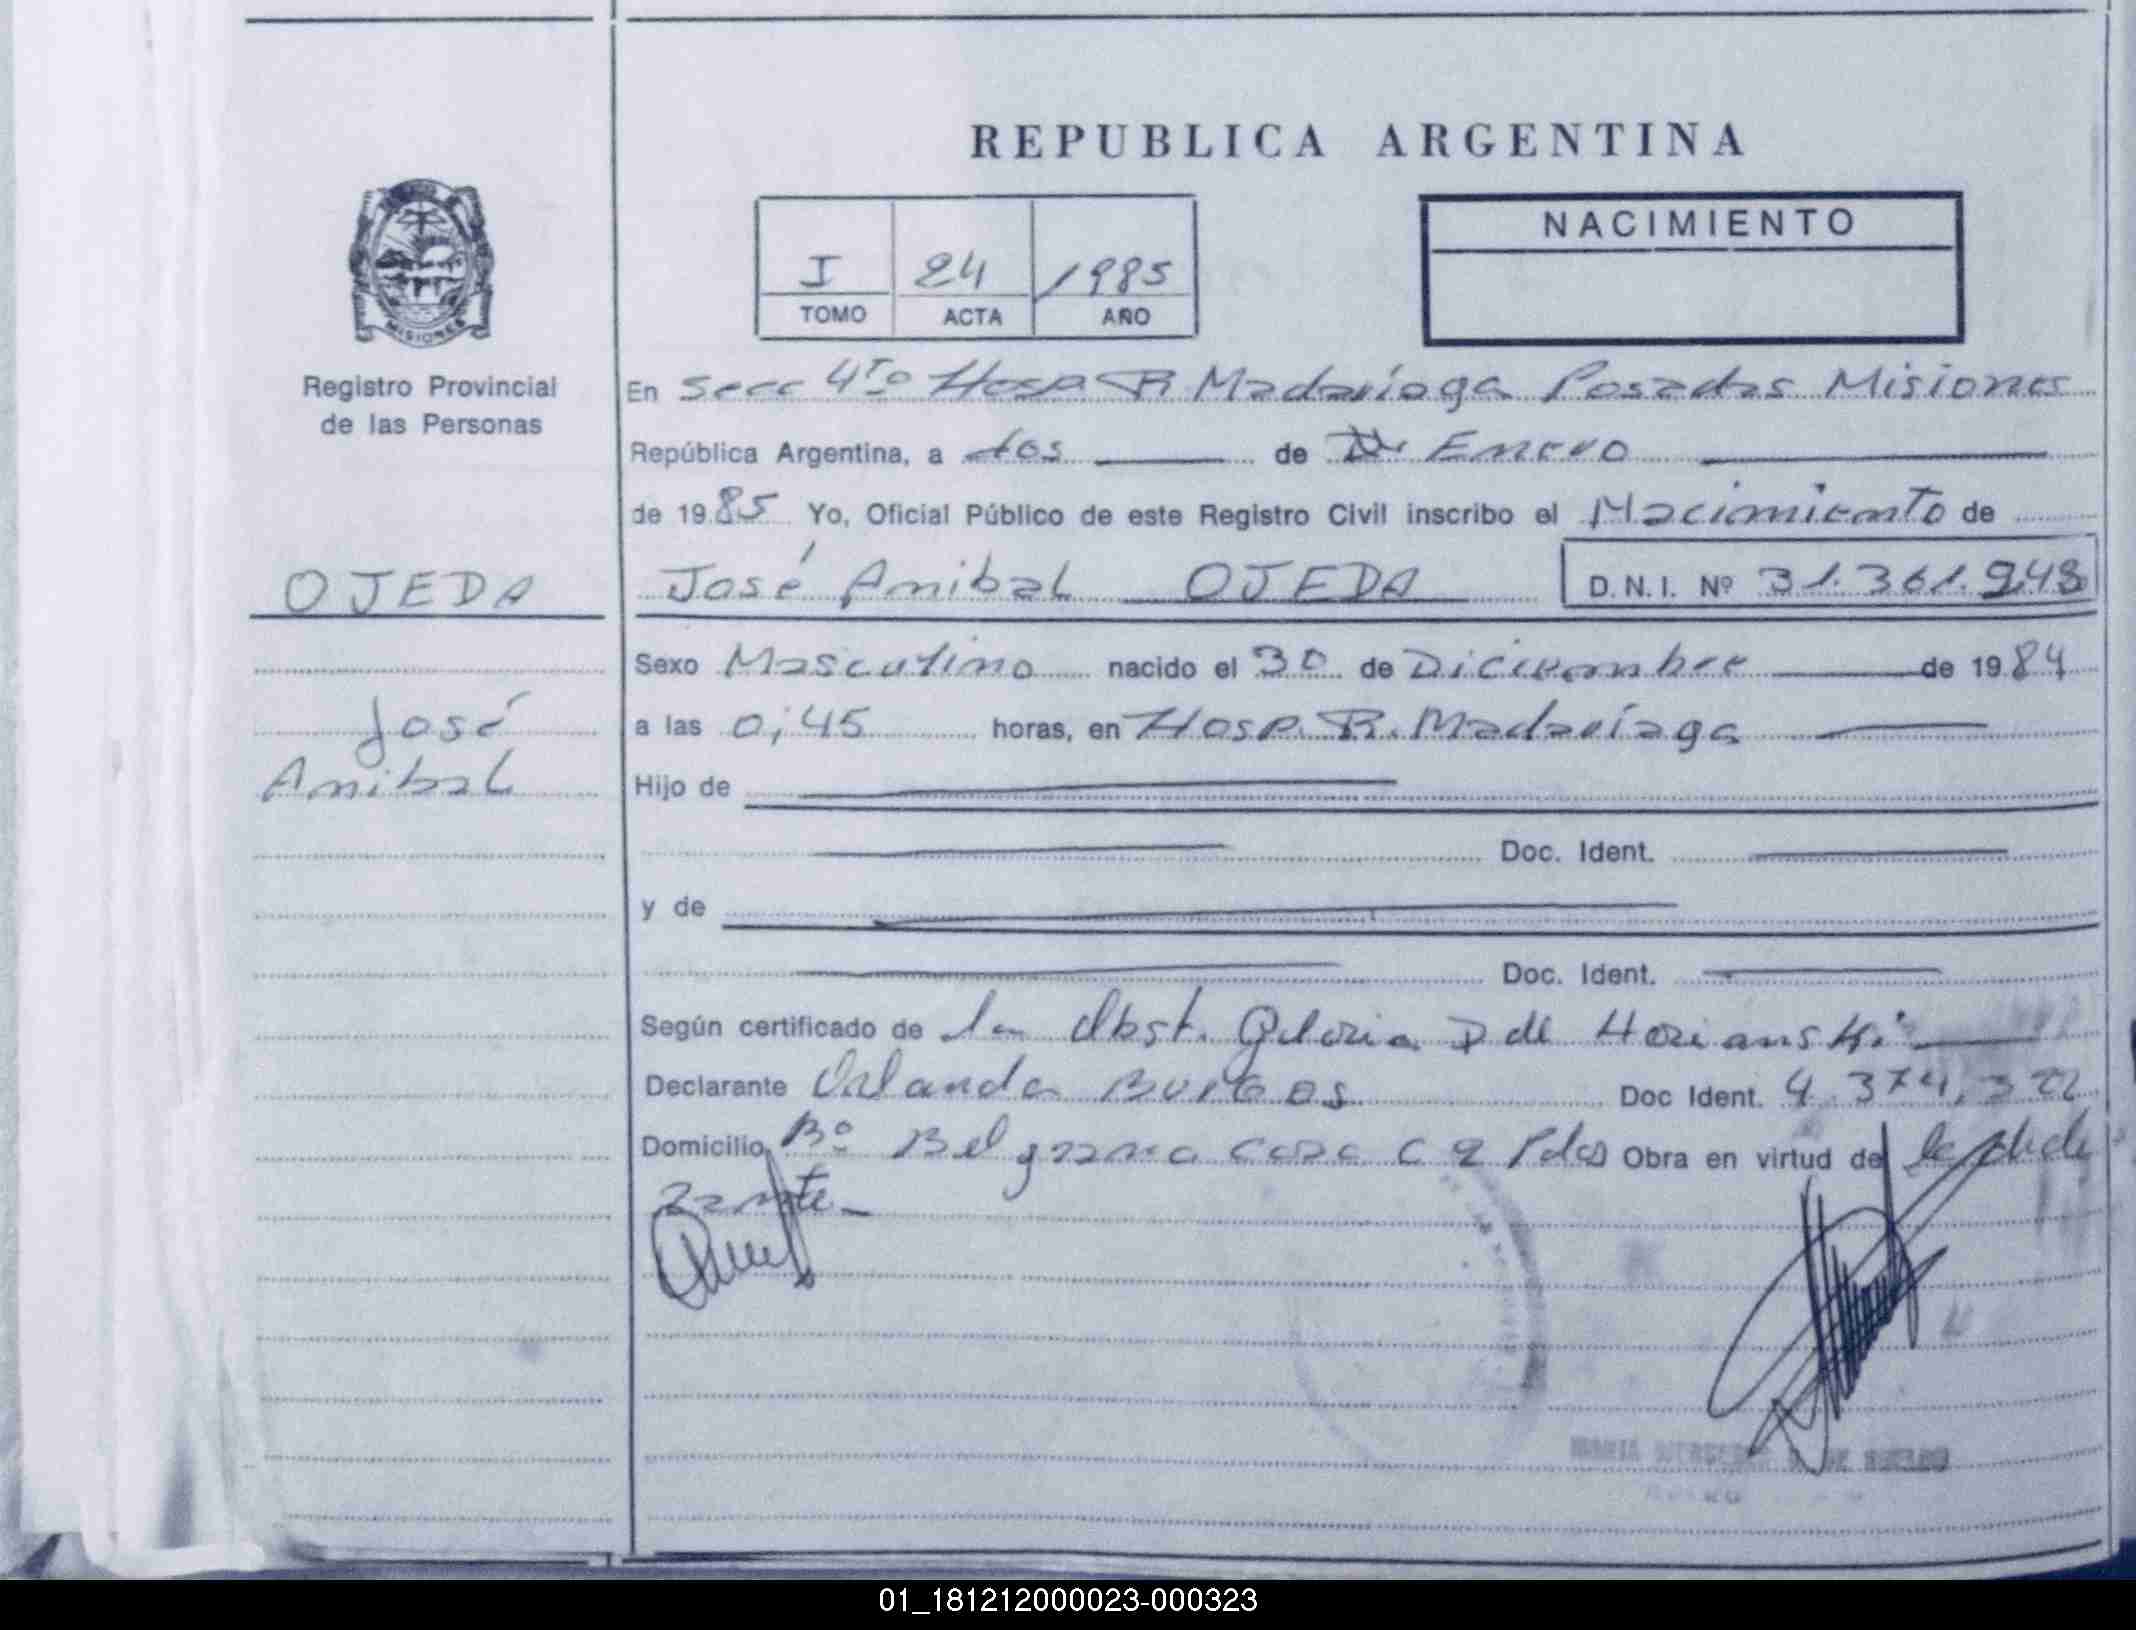 REPUBLICA ARGENTINA
I 24 1985
TOMO ACTA AÑO
NACIMIENTO
MISIONES
Registro Provincial
de las Personas
OJEDA
José
Anibal
En Secc 4to Hosp. R Madariaga Posadas Misiones
República Argentina, a dos de Enero
de 1985 Yo, Oficial Público de este Registro Civil inscribo el Nacimiento de
José Anibal OJEDA D.N.I. Nº 31.361.943
Sexo Masculino nacido el 30 de Diciembre de 1984
a las 0,45 horas, en Hosp. R. Madariaga
Hijo de
Doc. Ident.
y de
Doc. Ident.
Según certificado de la Obst. Gloria D de Horianski
Declarante Orlando Burgos Doc Ident. 4.374.322
Domicilio Bº Belgrano casa C 2 Pdas Obra en virtud de la
MARIA DE
01_181212000023-000323